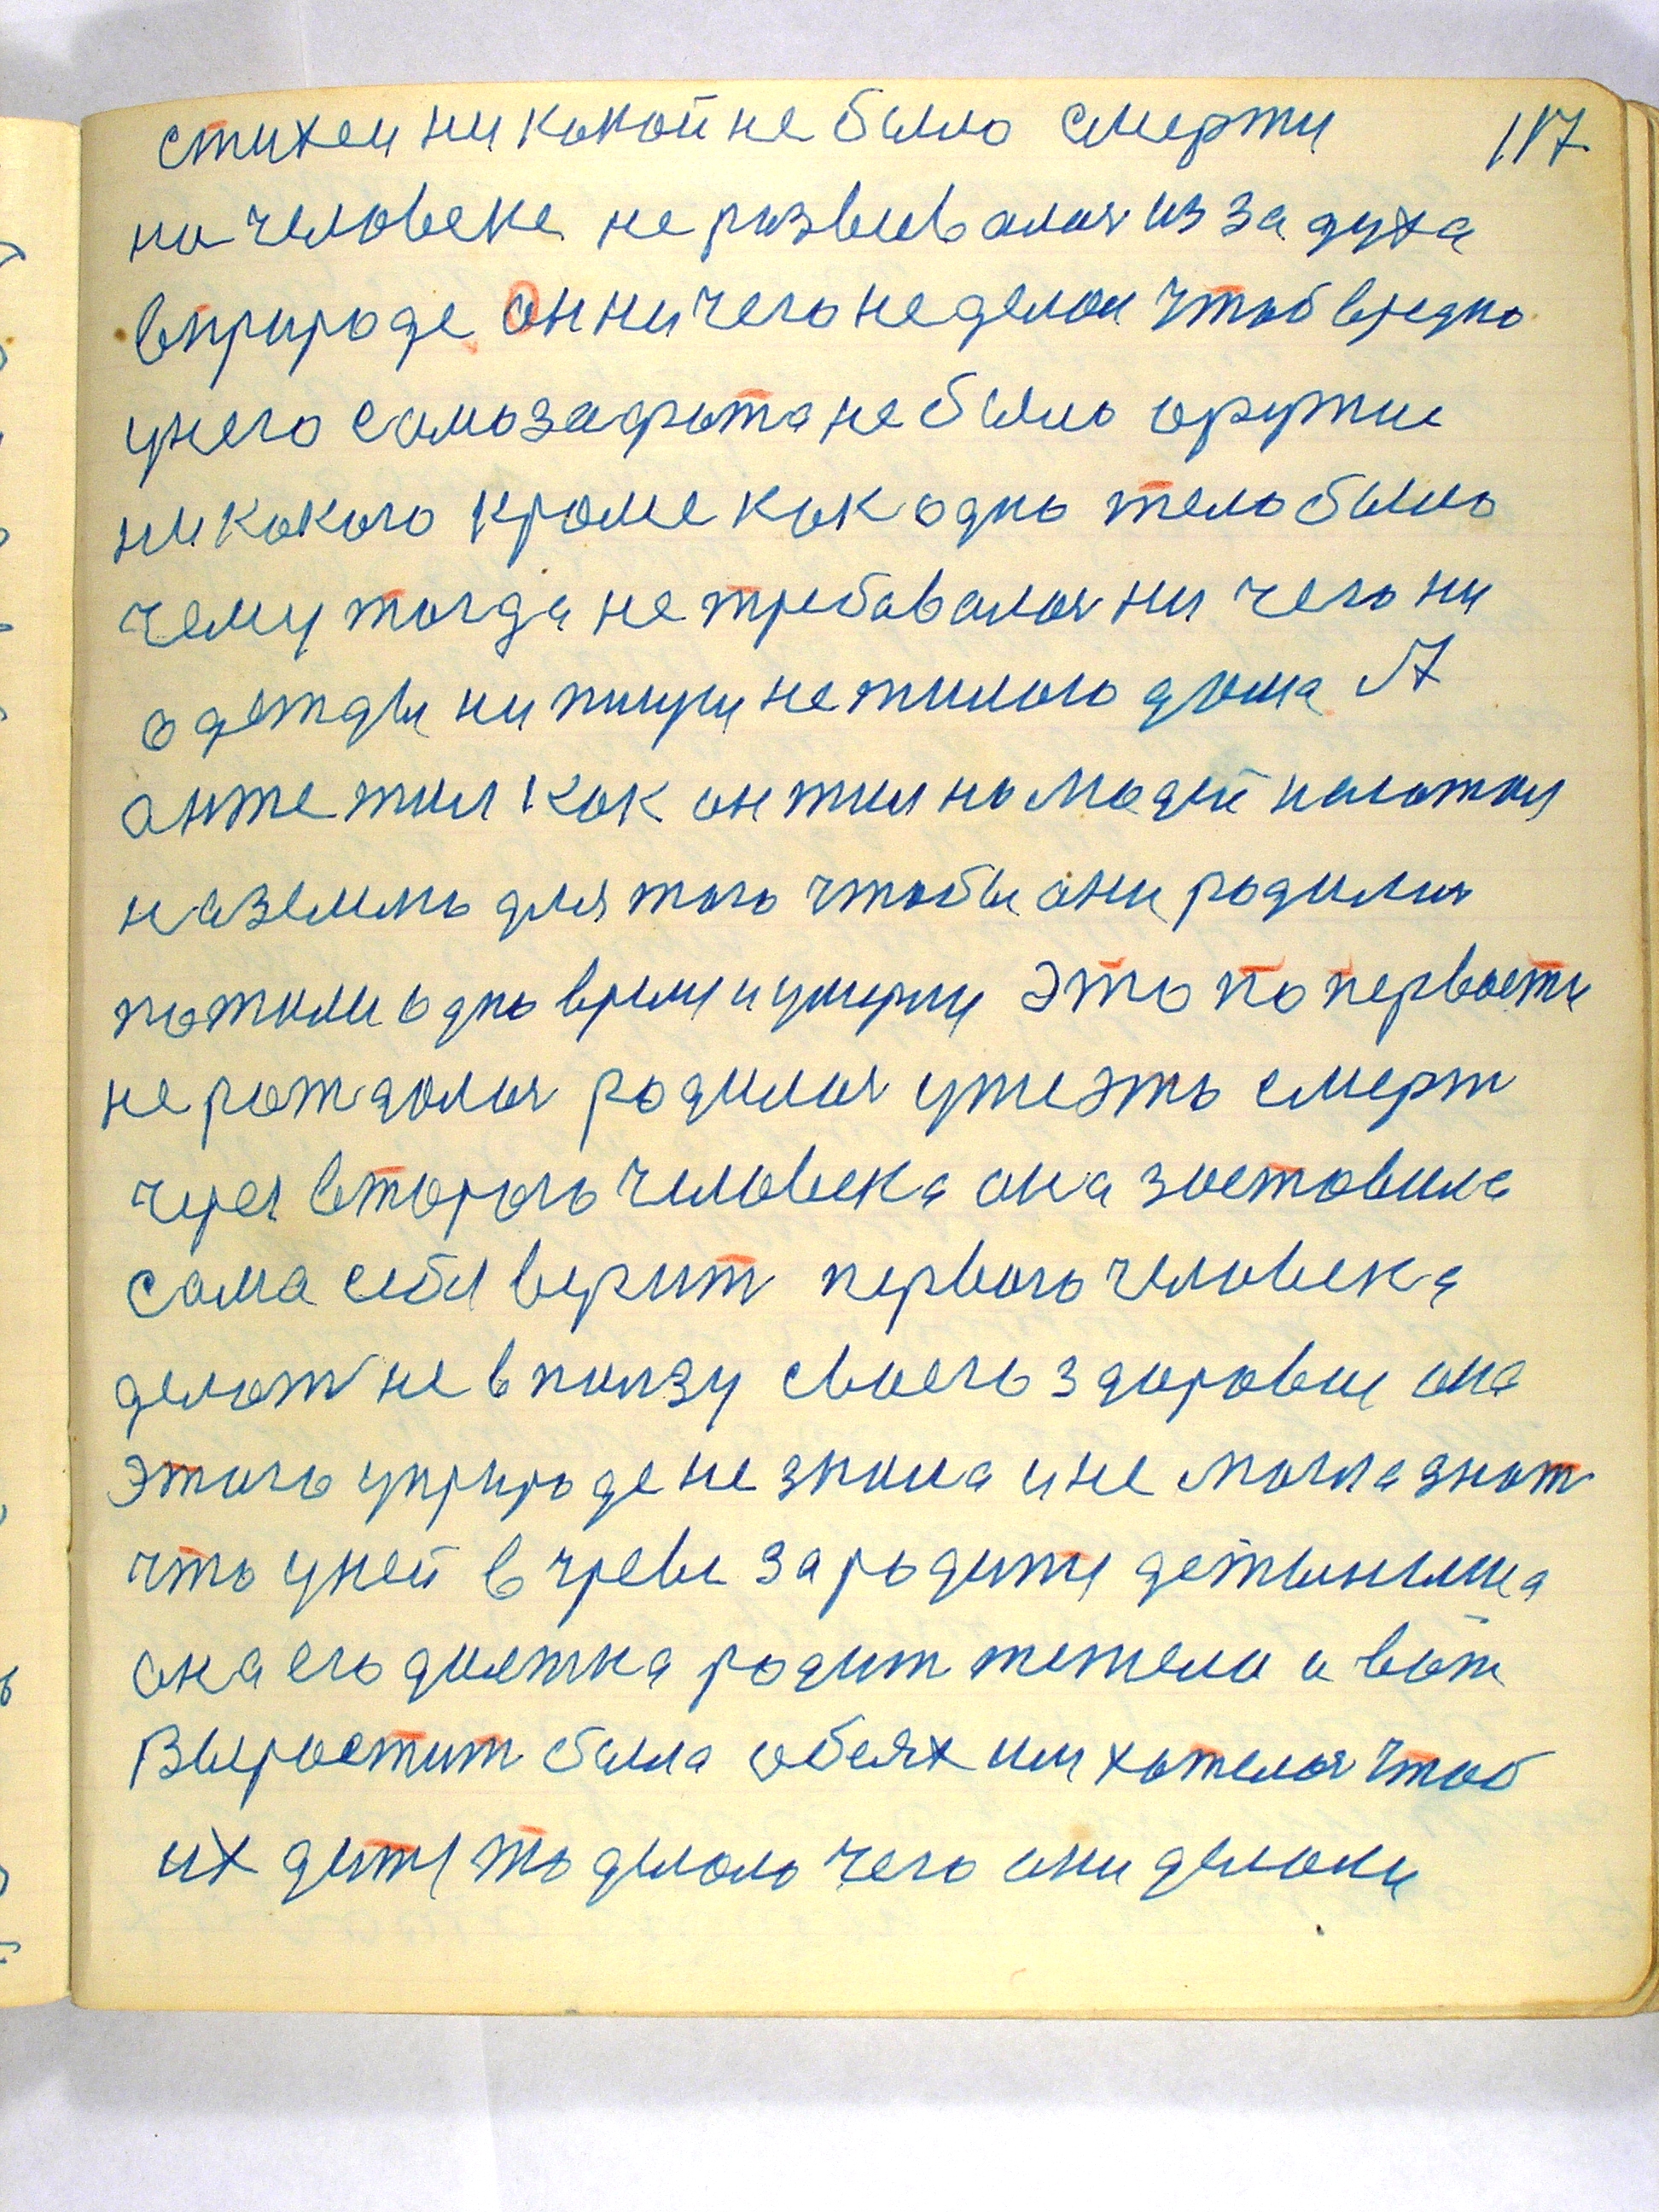 стихеи ни кокой не было смерти 117
на человеке не развивалася из за духа
в природе он ни чего не делал чтоб вредно
у него самозащита не было оружие
ни кокого кроме как одно тело было
чему тогда не требавалося ни чего ни
одежды ни пищи не жилого дома А
он же жил как он жил на людей
на землю для того чтобы они родились
пожили одно время и умерли это по первости
не рождалося родилося уже эть смерт
через второго человека она заставила
сама себя верит первого человека
делат не в ползу своего здоровие она
этого у природе не знала и не могла знат
что у ней в чреве зародится детынышиа
она его должна родит тежело а вот
выростит была обеях им хотелося чтоб
их дитя то делало чего они делали